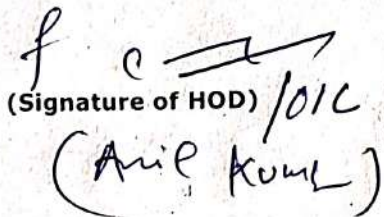 (Signature of HOD) /OIC
(Anil Kumar)